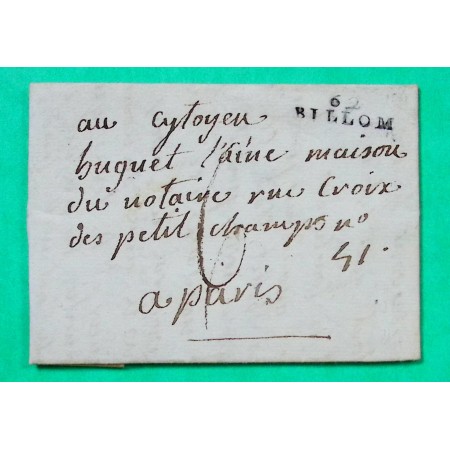 62
BILLOM
au cytoyen
huguet l'ainé maison
du notaire rue Croix
des petit champs no
41.
a paris